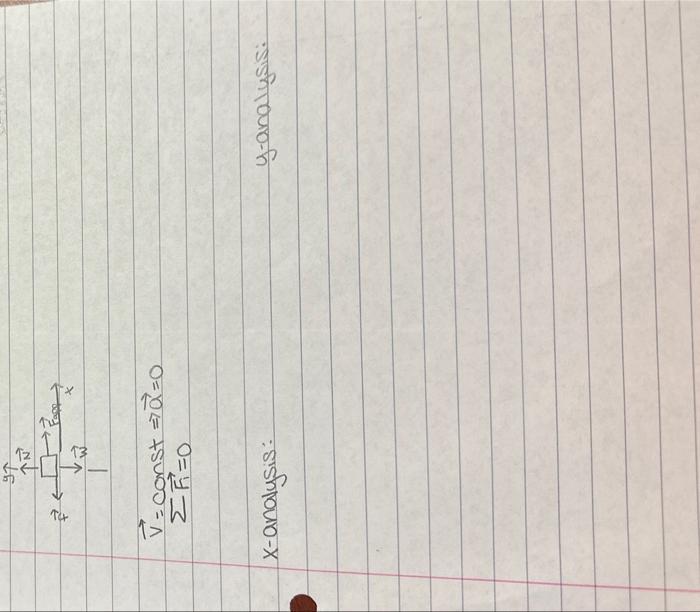 y
N⃗
f⃗ F⃗app
x
W⃗
v⃗ = const ⇒ a⃗ = 0
∑ F⃗i = 0
x-analysis: y-analysis: